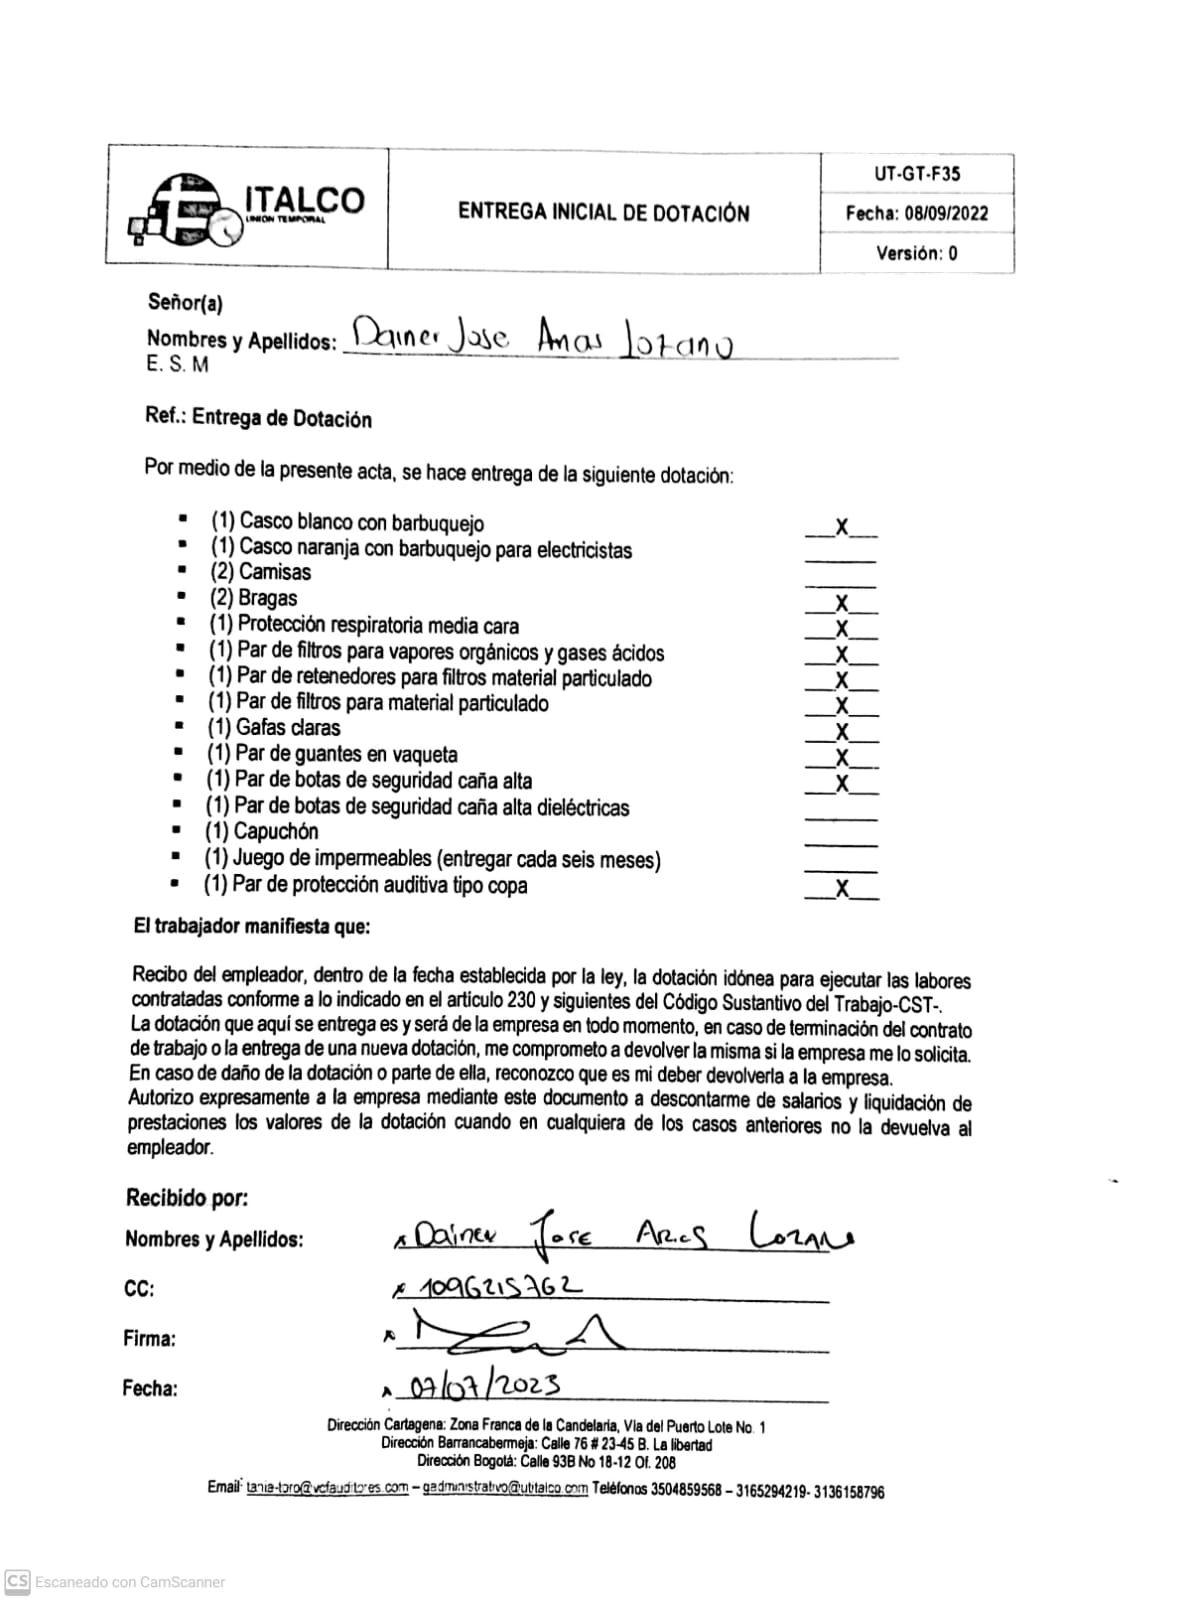 ITALCO
UNION TEMPORAL
ENTREGA INICIAL DE DOTACIÓN
UT-GT-F35
Fecha: 08/09/2022
Versión: 0
Señor(a)
Nombres y Apellidos: Dainer Jose Arias Lozano
E. S. M
Ref.: Entrega de Dotación
Por medio de la presente acta, se hace entrega de la siguiente dotación:
▪ (1) Casco blanco con barbuquejo X
▪ (1) Casco naranja con barbuquejo para electricistas
▪ (2) Camisas
▪ (2) Bragas X
▪ (1) Protección respiratoria media cara X
▪ (1) Par de filtros para vapores orgánicos y gases ácidos X
▪ (1) Par de retenedores para filtros material particulado X
▪ (1) Par de filtros para material particulado X
▪ (1) Gafas claras X
▪ (1) Par de guantes en vaqueta X
▪ (1) Par de botas de seguridad caña alta X
▪ (1) Par de botas de seguridad caña alta dieléctricas
▪ (1) Capuchón
▪ (1) Juego de impermeables (entregar cada seis meses)
▪ (1) Par de protección auditiva tipo copa X
El trabajador manifiesta que:
Recibo del empleador, dentro de la fecha establecida por la ley, la dotación idónea para ejecutar las labores
contratadas conforme a lo indicado en el articulo 230 y siguientes del Código Sustantivo del Trabajo-CST-.
La dotación que aquí se entrega es y será de la empresa en todo momento, en caso de terminación del contrato
de trabajo o la entrega de una nueva dotación, me comprometo a devolver la misma si la empresa me lo solicita.
En caso de daño de la dotación o parte de ella, reconozco que es mi deber devolverla a la empresa.
Autorizo expresamente a la empresa mediante este documento a descontarme de salarios y liquidación de
prestaciones los valores de la dotación cuando en cualquiera de los casos anteriores no la devuelva al
empleador.
Recibido por:
Nombres y Apellidos: x Dainer Jose Arias Lozano
CC: x 1096215762
Firma: x
Fecha: x 07/07/2023
Dirección Cartagena: Zona Franca de la Candelaria, Via del Puerto Lote No. 1
Dirección Barrancabermeja: Calle 76 # 23-45 B. La libertad
Dirección Bogotá: Calle 93B No 18-12 Of. 208
Email: tania-toro@vcfauditores.com – gadministrativo@utitalco.com Teléfonos 3504859568 – 3165294219- 3136158796
CS Escaneado con CamScanner